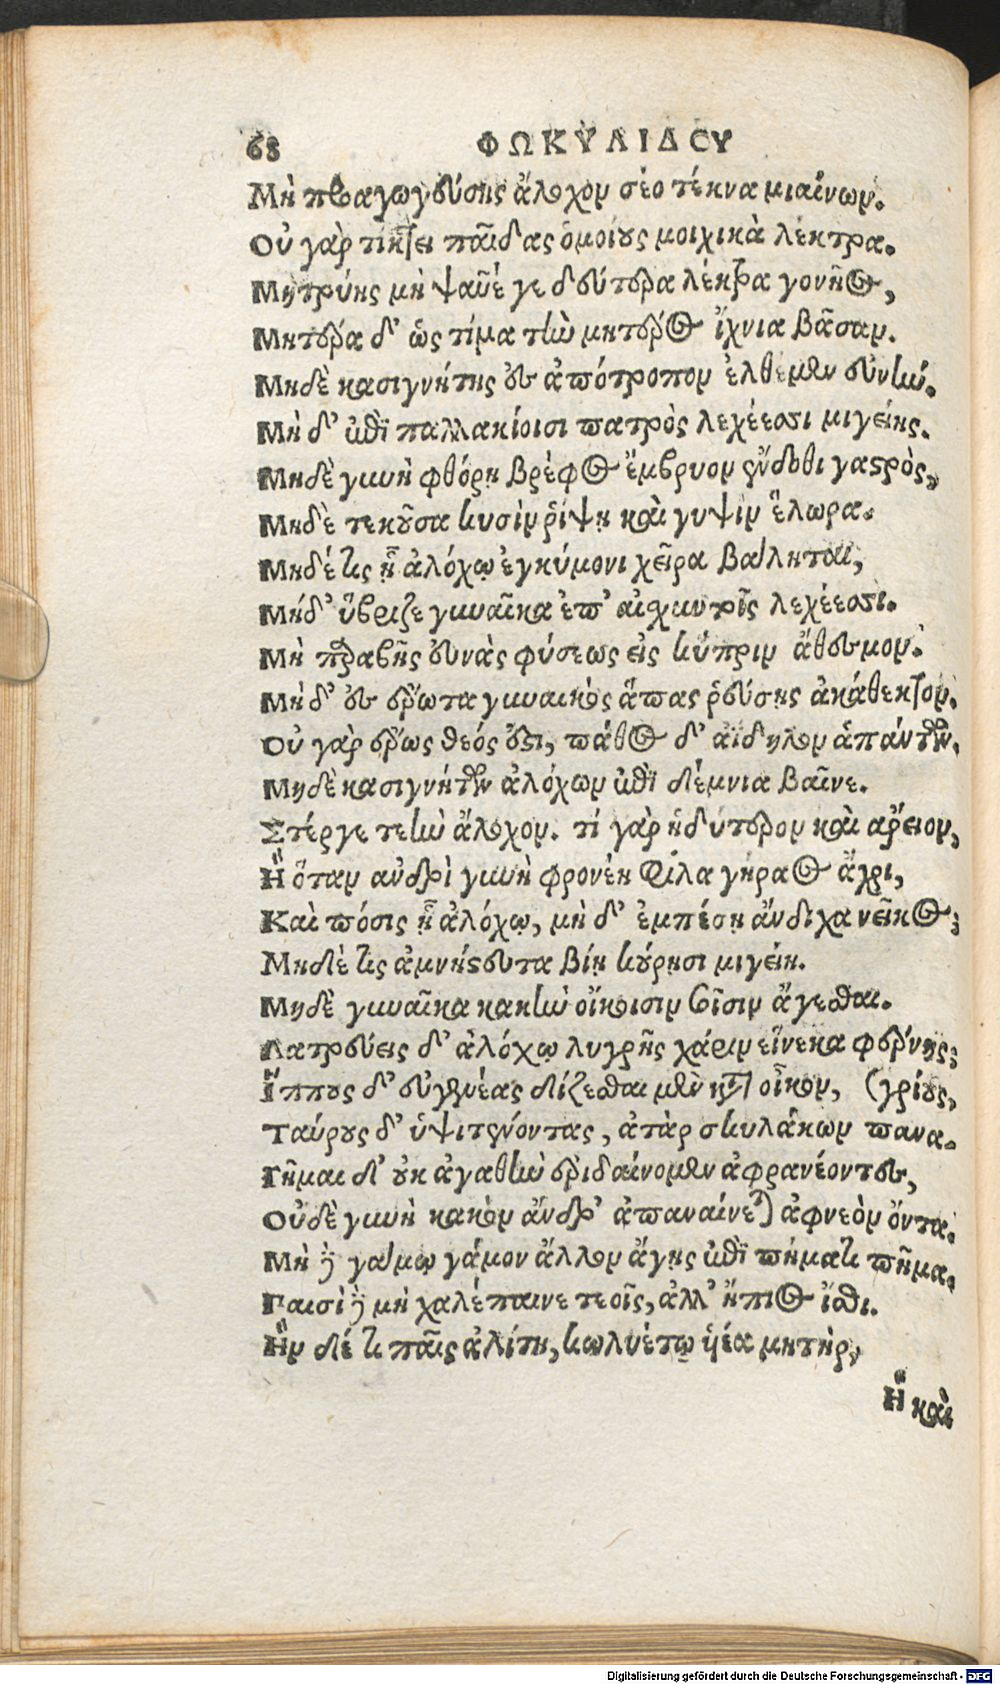 68 ΦΩΚΥΛΙΔΟΥ
Μὴ προαγωγεύσῃς ἄλοχον σέο τέκνα μιαίνων.
Οὐ γὰρ τίκτει παῖδας ὁμοίους μοιχικὰ λέκτρα.
Μητρύης μὴ ψαῦέ γε δεύτερα λέκτρα γονῆος,
Μητέρα δ' ὡς τίμα τὴν μητέρος ἴχνια βᾶσαν.
Μηδὲ κασιγνήτης ἐς ἀπότροπον ἐλθέμεν εὐνήν.
Μὴ δ' ἐπὶ παλλακίοισι πατρὸς λεχέεσσι μιγείης.
Μηδὲ γυνὴ φθόρῃ βρέφος ἔμβρυον ἔνδοθι γαστρὸς,
Μηδὲ τεκοῦσα κυσὶν ῥίψῃ καὶ γυψὶν ἕλωρα.
Μηδέ τις ᾗ ἀλόχῳ ἐγκύμονι χεῖρα βάληται,
Μήδ' ὕβριζε γυναῖκα ἐπ' αἰσχυντοῖς λεχέεσσι.
Μὴ παραβῇς εὐνὰς φύσεως εἰς κύπριν ἄθεσμον.
Μὴ δ' ἐς ἔρωτα γυναικὸς ἅπας ῥεύσῃς ἀκάθεκτον.
Οὐ γὰρ ἔρως θεός ἐστι, πάθος δ' ἀΐδηλον ἁπάντων.
Μηδὲ κασιγνήτων ἀλόχων ἐπὶ δέμνια βαῖνε.
Στέργε τεὴν ἄλοχον. τί γὰρ ἡδύτερον καὶ ἄρειον,
Ἢ ὅταν ἀνδρὶ γυνὴ φρονέῃ φίλα γήραος ἄχρι,
Καὶ πόσις ᾗ ἀλόχῳ, μὴ δ' ἐμπέσῃ ἄνδιχα νεῖκος;
Μηδέ τις ἀμνήστευτα βίῃ κούρῃσι μιγείη.
Μηδὲ γυναῖκα κακὴν οἴκοισιν σοῖσιν ἄγεσθαι.
Λατρεύεις δ' ἀλόχῳ λυγρῆς χάριν εἵνεκα φερνῆς;
Ἵππους δ' εὐγενέας δίζεσθαι μὲν κατὰ οἶκον, (γρίους,
Ταύρους δ' ὑψιτένοντας, ἀτὰρ σκυλάκων πανα-
Γῆμαι δ' οὐκ ἀγαθὴν ἐριδαίνομεν ἀφρανέοντες,
Οὐδὲ γυνὴ κακὸν ἄνδρ' ἀπαναίνεται ἀφνεὸν ὄντα.
Μὴ δὲ γάμῳ γάμον ἄλλον ἄγῃς ἐπὶ πήματι πῆμα.
Παισὶ δὲ μὴ χαλέπαινε τεοῖς, ἀλλ' ἤπιος ἴσθι.
Ἢν δέ τι παῖς ἀλίτῃ, κωλυέτω ὑέα μητὴρ,
Ἢ καὶ
Digitalisierung gefördert durch die Deutsche Forschungsgemeinschaft - DFG